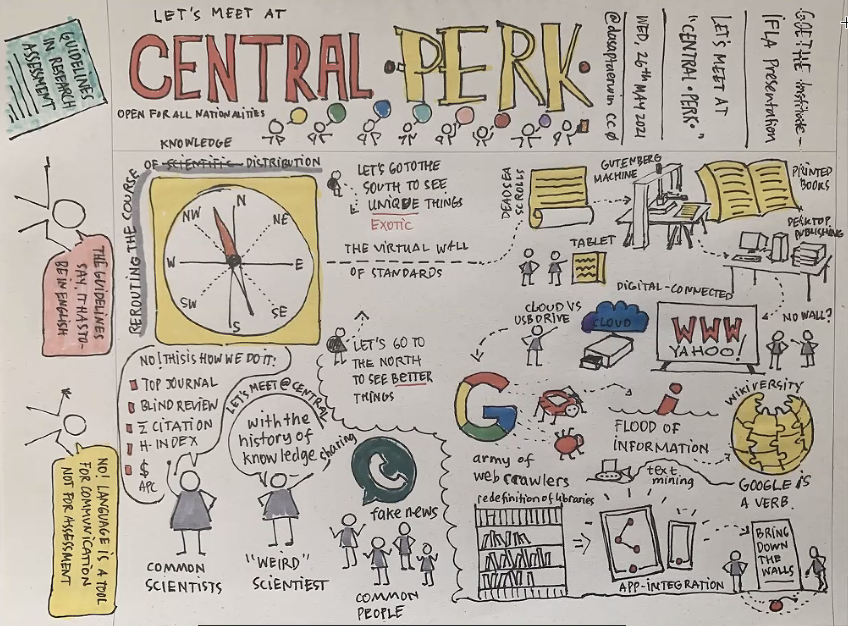 LET'S MEET AT
CENTRAL • PERK •
OPEN FOR ALL NATIONALITIES
@dasaptaerwin CC 0
WED, 26th MAY 2021
LET'S MEET AT
"CENTRAL • PERK •"
IFLA Presentation
GUIDELINES
IN RESEARCH
ASSESSMENT
THE GUIDELINES
SAY, IT HAS TO
BE IN ENGLISH
NO! LANGUAGE IS A TOOL
FOR COMMUNICATION
NOT FOR ASSESSMENT
REROUTING THE COURSE
KNOWLEDGE
OF SCIENTIFIC DISTRIBUTION
N
NE
E
SE
S
SW
W
NW
LET'S GO TO THE
SOUTH TO SEE
UNIQUE THINGS
EXOTIC
THE VIRTUAL WALL
OF STANDARDS
LET'S GO TO
THE NORTH
TO SEE BETTER
THINGS
NO! THIS IS HOW WE DO IT:
TOP JOURNAL
BLIND REVIEW
Σ CITATION
H-INDEX
$
APC
COMMON
SCIENTISTS
LET'S MEET @ CENTRAL
with the
history of
knowledge
sharing
"WEIRD"
SCIENTIEST
fake news
COMMON
PEOPLE
DEADSEA
SCROLLS
GUTENBERG
MACHINE
PRINTED
BOOKS
TABLET
DESKTOP
PUBLISHING
DIGITAL-CONNECTED
CLOUD VS
USB DRIVE
CLOUD
WWW
YAHOO!
NO WALL?
G
army of
web crawlers
i
FLOOD OF
INFORMATION
text
mining
WIKIVERSITY
GOOGLE IS
A VERB.
redefinition of libraries
APP-INTEGRATION
BRING
DOWN
THE
WALLS